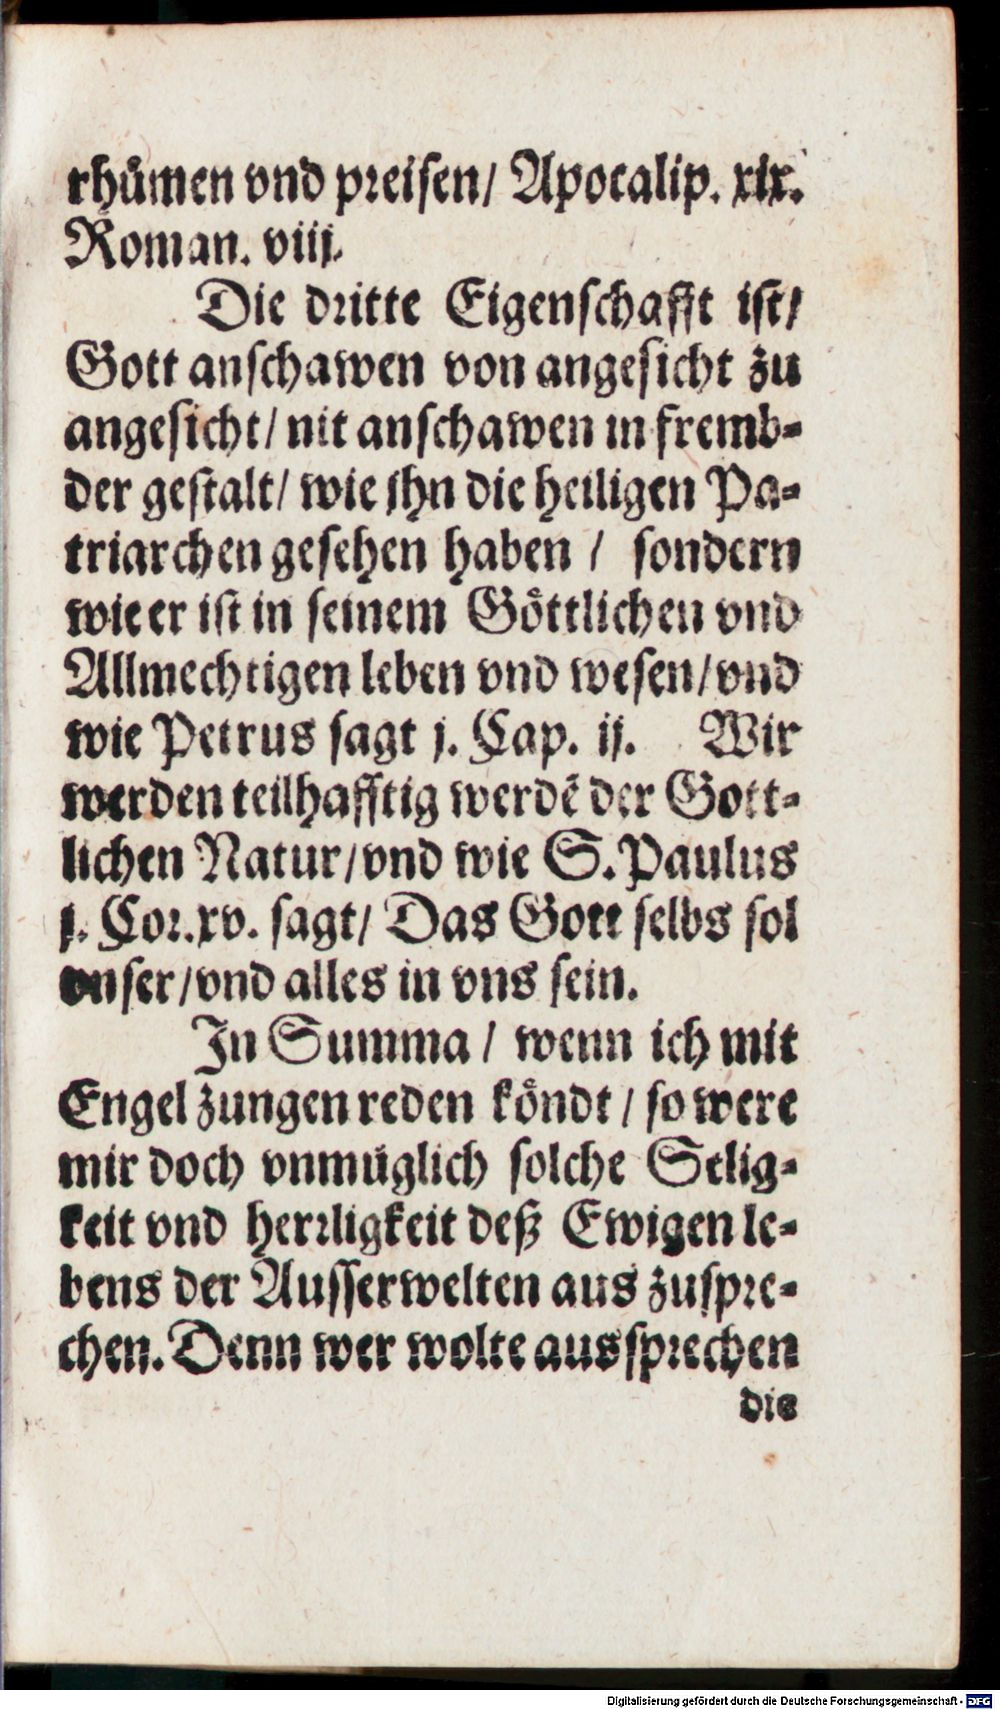 rhůmen vnd preisen/ Apocalip. xix.
Roman. viij.
Die dritte Eigenschafft ist/
Gott anschawen von angesicht zu
angesicht/ nit anschawen in fremb-
der gestalt/ wie jhn die heiligen Pa-
triarchen gesehen haben / sondern
wie er ist in seinem Göttlichen vnd
Allmechtigen leben vnd wesen/vnd
wie Petrus sagt j. Cap. ij. Wir
werden teilhafftig werdē der Gott-
lichen Natur/vnd wie S. Paulus
j. Cor.xv. sagt/ Das Gott selbs sol
vnser/vnd alles in vns sein.
In Summa / wenn ich mit
Engel zungen reden köndt / so were
mir doch vnmüglich solche Selig-
keit vnd herrligkeit deß Ewigen le-
bens der Ausserwelten aus zuspre-
chen. Denn wer wolte aussprechen
die
Digitalisierung gefördert durch die Deutsche Forschungsgemeinschaft - DFG